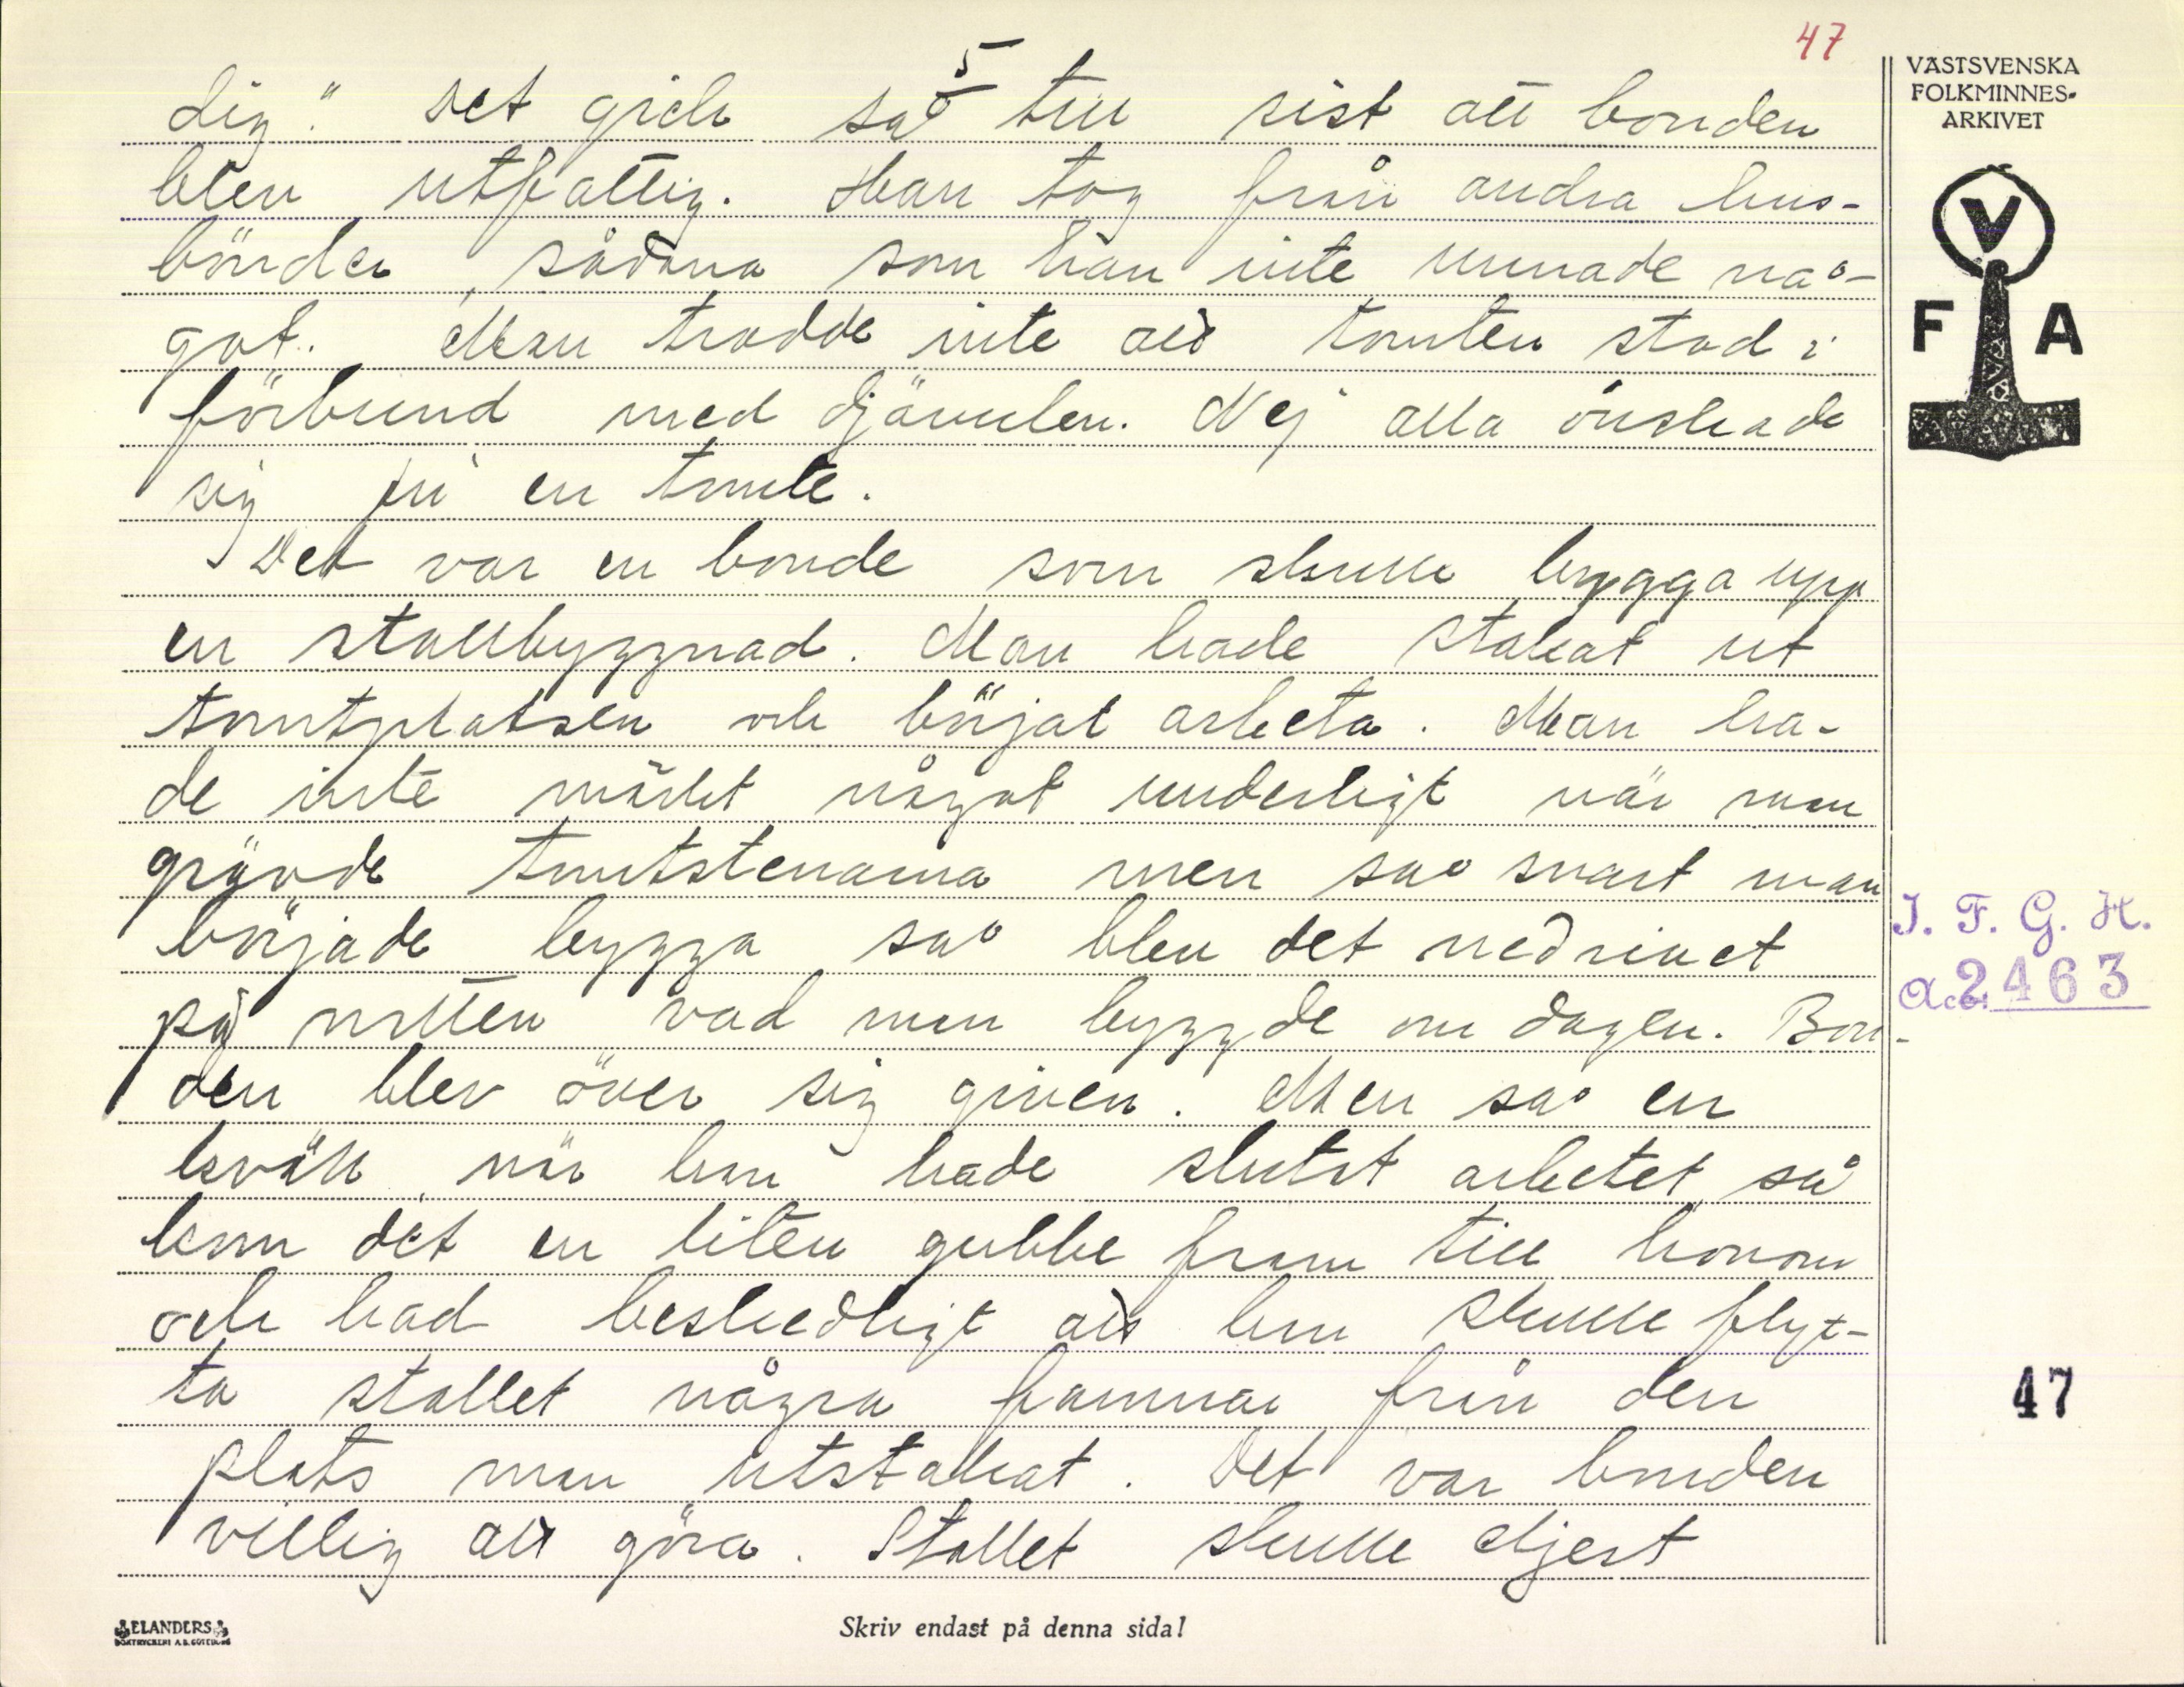 47
5
dig." Det gick så till sist att bonden
blev utfattig. Han tog från andra hus-
bönder, sådana som han inte unnade nå-
got. Man trodde inte att tomten stod i
förbund med djävulen. Nej alla önskade
sig få en tomte.
Det var en bonde som skulle bygga upp
en stallbyggnad. Man hade stakat ut
tomtplatsen och börjat arbeta. Man ha-
de inte märkt något underligt när man
grävde tomtstenarna men så snart man
började bygga så blev det nedrivet
på natten vad man byggde om dagen. Bon-
den blev över sig given. Men så en
kväll, när han hade slutat arbetet, så
kom det en liten gubbe fram till honom
och bad beskedligt att han skulle flyt-
ta stallet några famnar från den
plats man utstakat. Det var bonden
villig att göra. Stallet skulle eljest
VÄSTSVENSKA
FOLKMINNES-
ARKIVET
V
F A
I. F. G. H.
Acc. 2463
47
ELANDERS
BOKTRYCKERI A.B. GÖTEBORG
Skriv endast på denna sida!